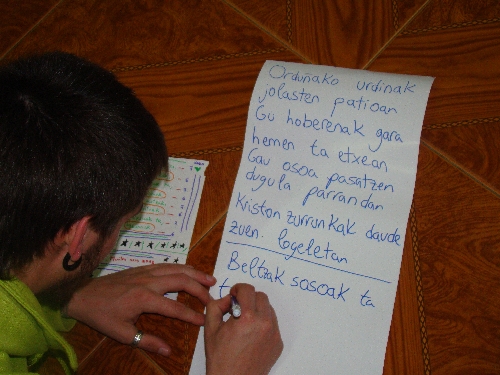 Orduñako urdinak
jolasten patioan
Gu hoberenak gara
hemen ta etxean
Gau osoa pasatzen
dugula parrandan
Kriston zurrunkak daude
zuen. logeletan
Beltzak sosoak ta
t